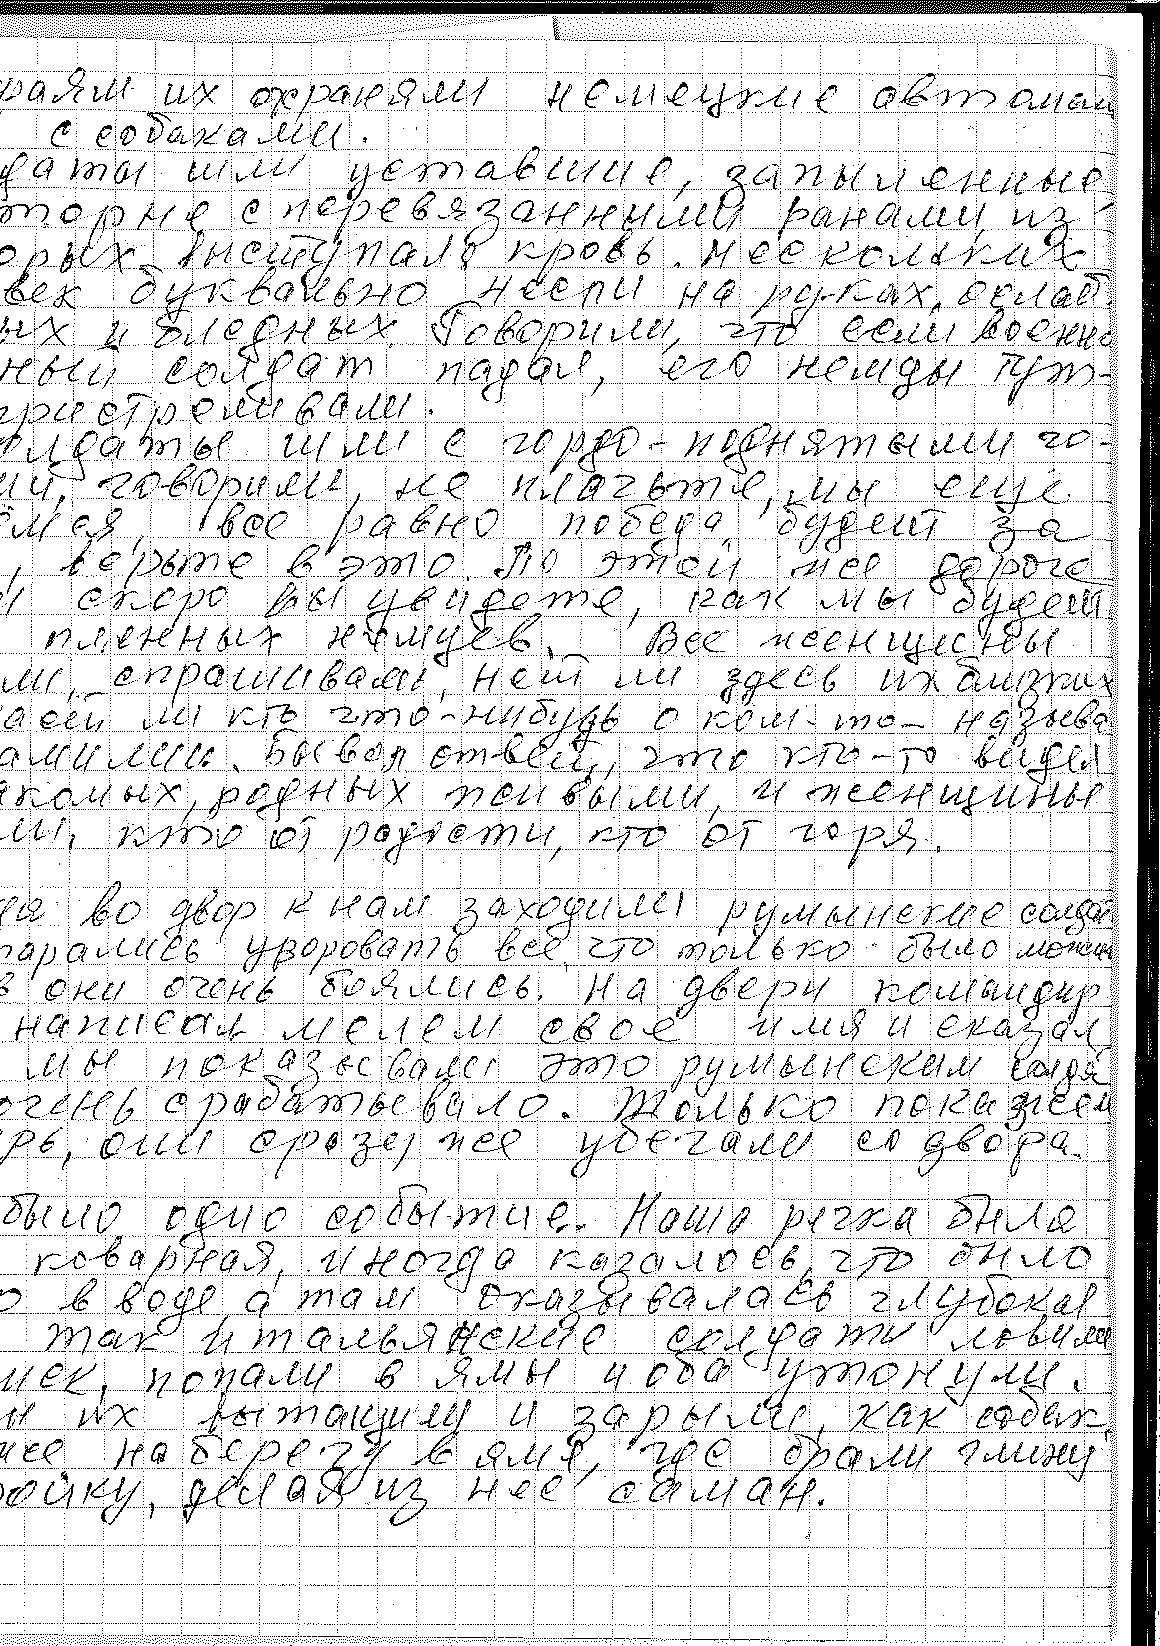 раям их охраняли немецкие автомат
с собаками.
даты шли уставшие, запыленные,
торые с перевязанными ранами, из
орых выступала кровь. Нескольких
век буквально несли на руках, ослаб.
ых и бледных. Говорили, что если военно
ный солдат падал, его немцы тут-
пристреливали.
олдаты шли с гордо-поднятыми го-
ми, говорили, не плачьте, мы еще
ёмся, все равно победа будет за
, верьте в это. По этой же дороге
скоро вы увидете, как мы будем
пленных немцев. Все женщины
ли, спрашивали, нет ли здесь их близких
наеи ли кто что-нибудь о ком-то - называ
амилии. Бывал ответ, что кто-то видел
акомых, родных живыми, и женщины
ли, кто от радости, кто от горя.
во двор к нам заходили румынские солда
тарались уворовать все, что только было можно
в они очень боялись. На двери командир
написал мелем свое имя и сказал
мы показывали это румынским солда
очень срабатывало. Только покажем
рь, они сразу же убегали со двора.
было одно событие. Наша речка была
коварная, иногда казалось, что было
о в воде а там оказывалась глубокая
так итальянские солдаты ловили
шек, попали в ямы и оба утонули.
ы их вытащили и зарыли, как собак,
же на берегу в яме, где брали глину
ройку, делая из нее саман.